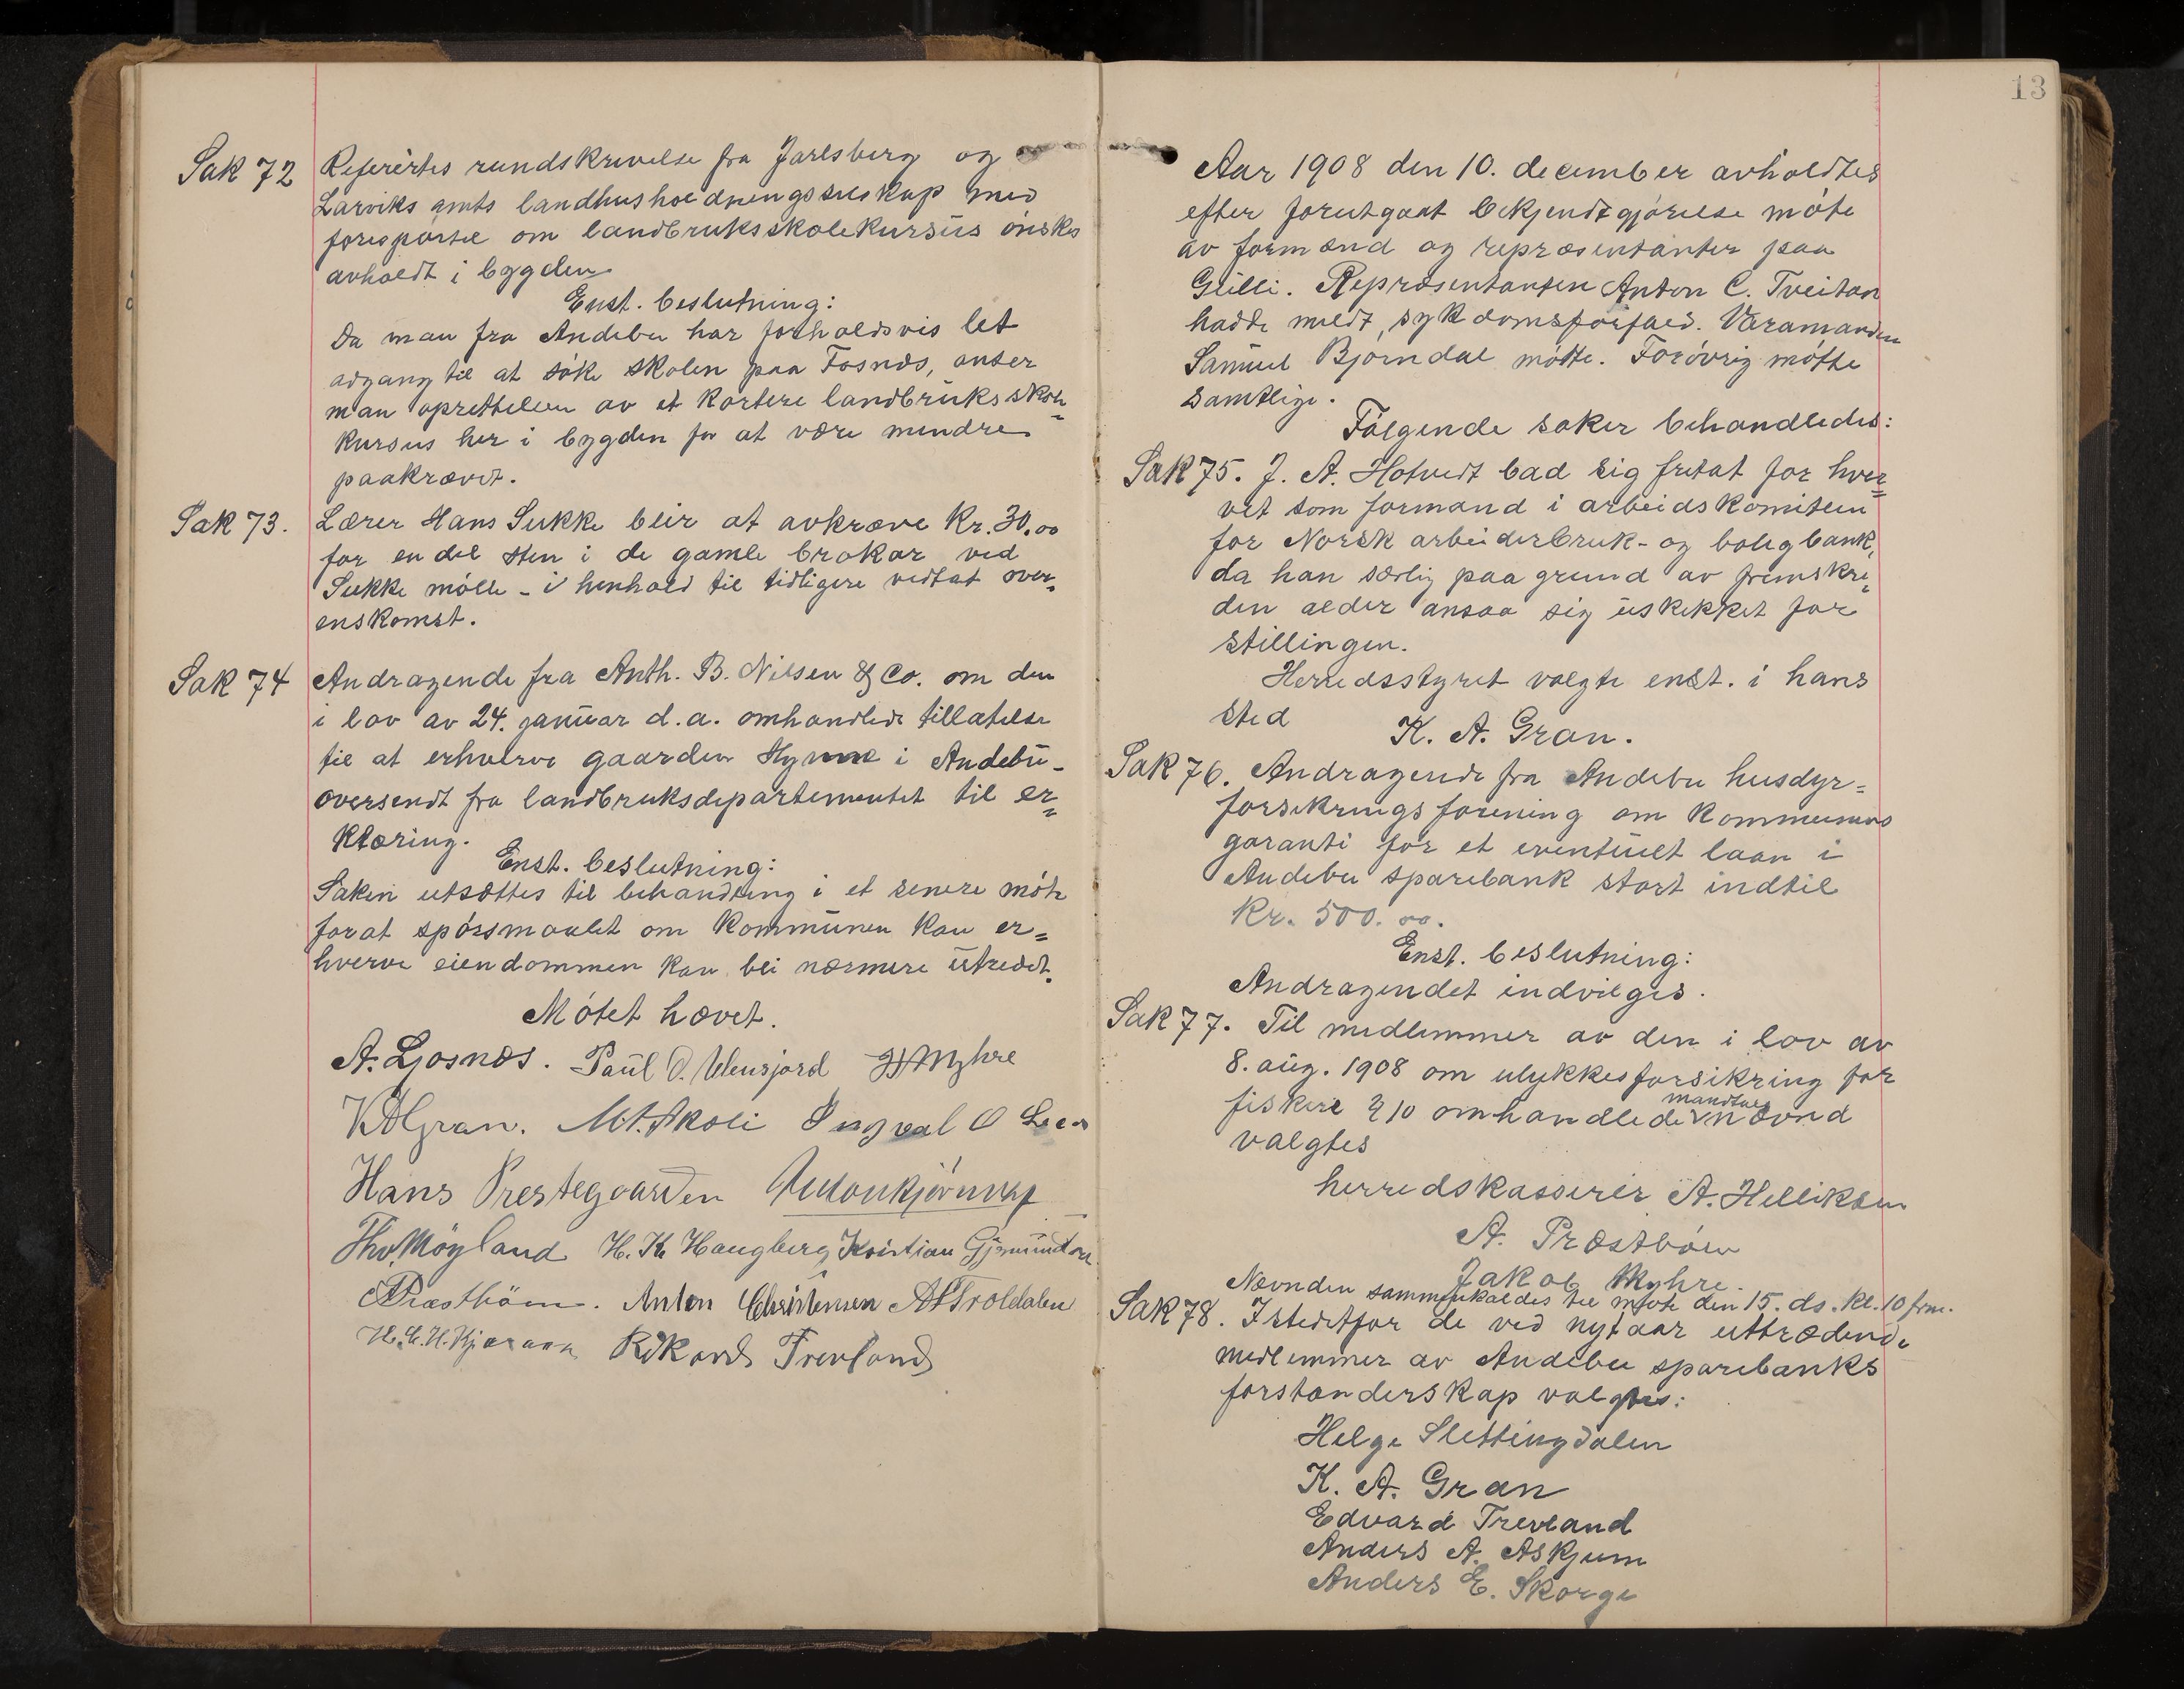 Sak 72
Referertes rundskrivelse fra Jarlsberg og
Larviks amts landhusholdningsselskap med
forespørsel om landbruksskolekursus ønskes
avholdt i bygden
Enst. beslutning:
Da man fra Andebu har forholdsvis let
adgang til at søke skolen paa Fosnæs, anser
man oprettelsen av et kortere landbruksskole-
kursus her i bygden for at være mindre
paakrævet.
Sak 73.
Lærer Hans Sukke blir at avkræve Kr. 30.00
for en del sten i de gamle brokar ved
Sukke mølle - i henhold til tidligere vedtat over-
enskomst.
Sak 74
Andragende fra Anth. B. Nilsen & Co. om den
i lov av 24. januar d.a. omhandlede tillatelse
til at erhverve gaarden i Andebu -
oversendt fra landbruksdepartementet til er=
klæring.
Enst. beslutning:
Saken utsættes til behandling i et senere møte
forat spørsmaalet om kommunen kan er=
hverve eiendommen kan bli nærmere utredet.
Møtet hævet.
A. Ljosnæs. Paul O. H Myhre
KAGran. M. A. Skoli Ingval O Lien
Hans Prestegaarden
Thv. Møyland H. K. Haugberg Kristian Gjermundsen
APræstbøen. Anton Christensen A Troldalen
H. C. H. Kjæraas Rikard Trevland
13
Aar 1908 den 10. december avholdtes
efter forutgaat bekjendtgjørelse møte
av formænd og repræsentanter paa
Gulli. Repræsentanten Anton C. Tveitan
hadde meldt sykdomsforfald. Varamanden
Samuel Bjørndal møtte. Forøvrig møtte
samtlige.
Følgende saker behandledes:
Sak 75. J. A. Hotvedt bad sig fritat for hver=
vet som formand i arbeidskomiteen
for Norsk arbeiderbruk- og boligbank,
da han særlig paa grund av fremskre-
den alder ansaa sig uskikket for
stillingen.
Herredsstyret valgte enst. i hans
sted K. A. Gran.
Sak 76. Andragende fra Andebu husdyr=
forsikringsforening om kommunens
garanti for et eventuelt laan i
Andebu sparebank stort indtil
Kr. 500.00.
Enst. beslutning:
Andragendet indvilges.
Sak 77. Til medlemmer av den i lov av
8. aug. 1908 om ulykkesforsikring for
mandtals
fiskere § 10 omhandlede nævnd
valgtes
herredskasserer A. Helliksen
A. Præstbøen
Jakob Myhre.
Nævnden sammenkaldes til møte den 15. ds. kl. 10 frm.
Sak 78. Istedetfor de ved nytaar uttrædende
medlemmer av Andebu sparebanks
forstanderskap valgtes:
Helge Slettingdalen
K. A. Gran
Edvard Trevland
Anders A. Askjum
Anders E. Skorge